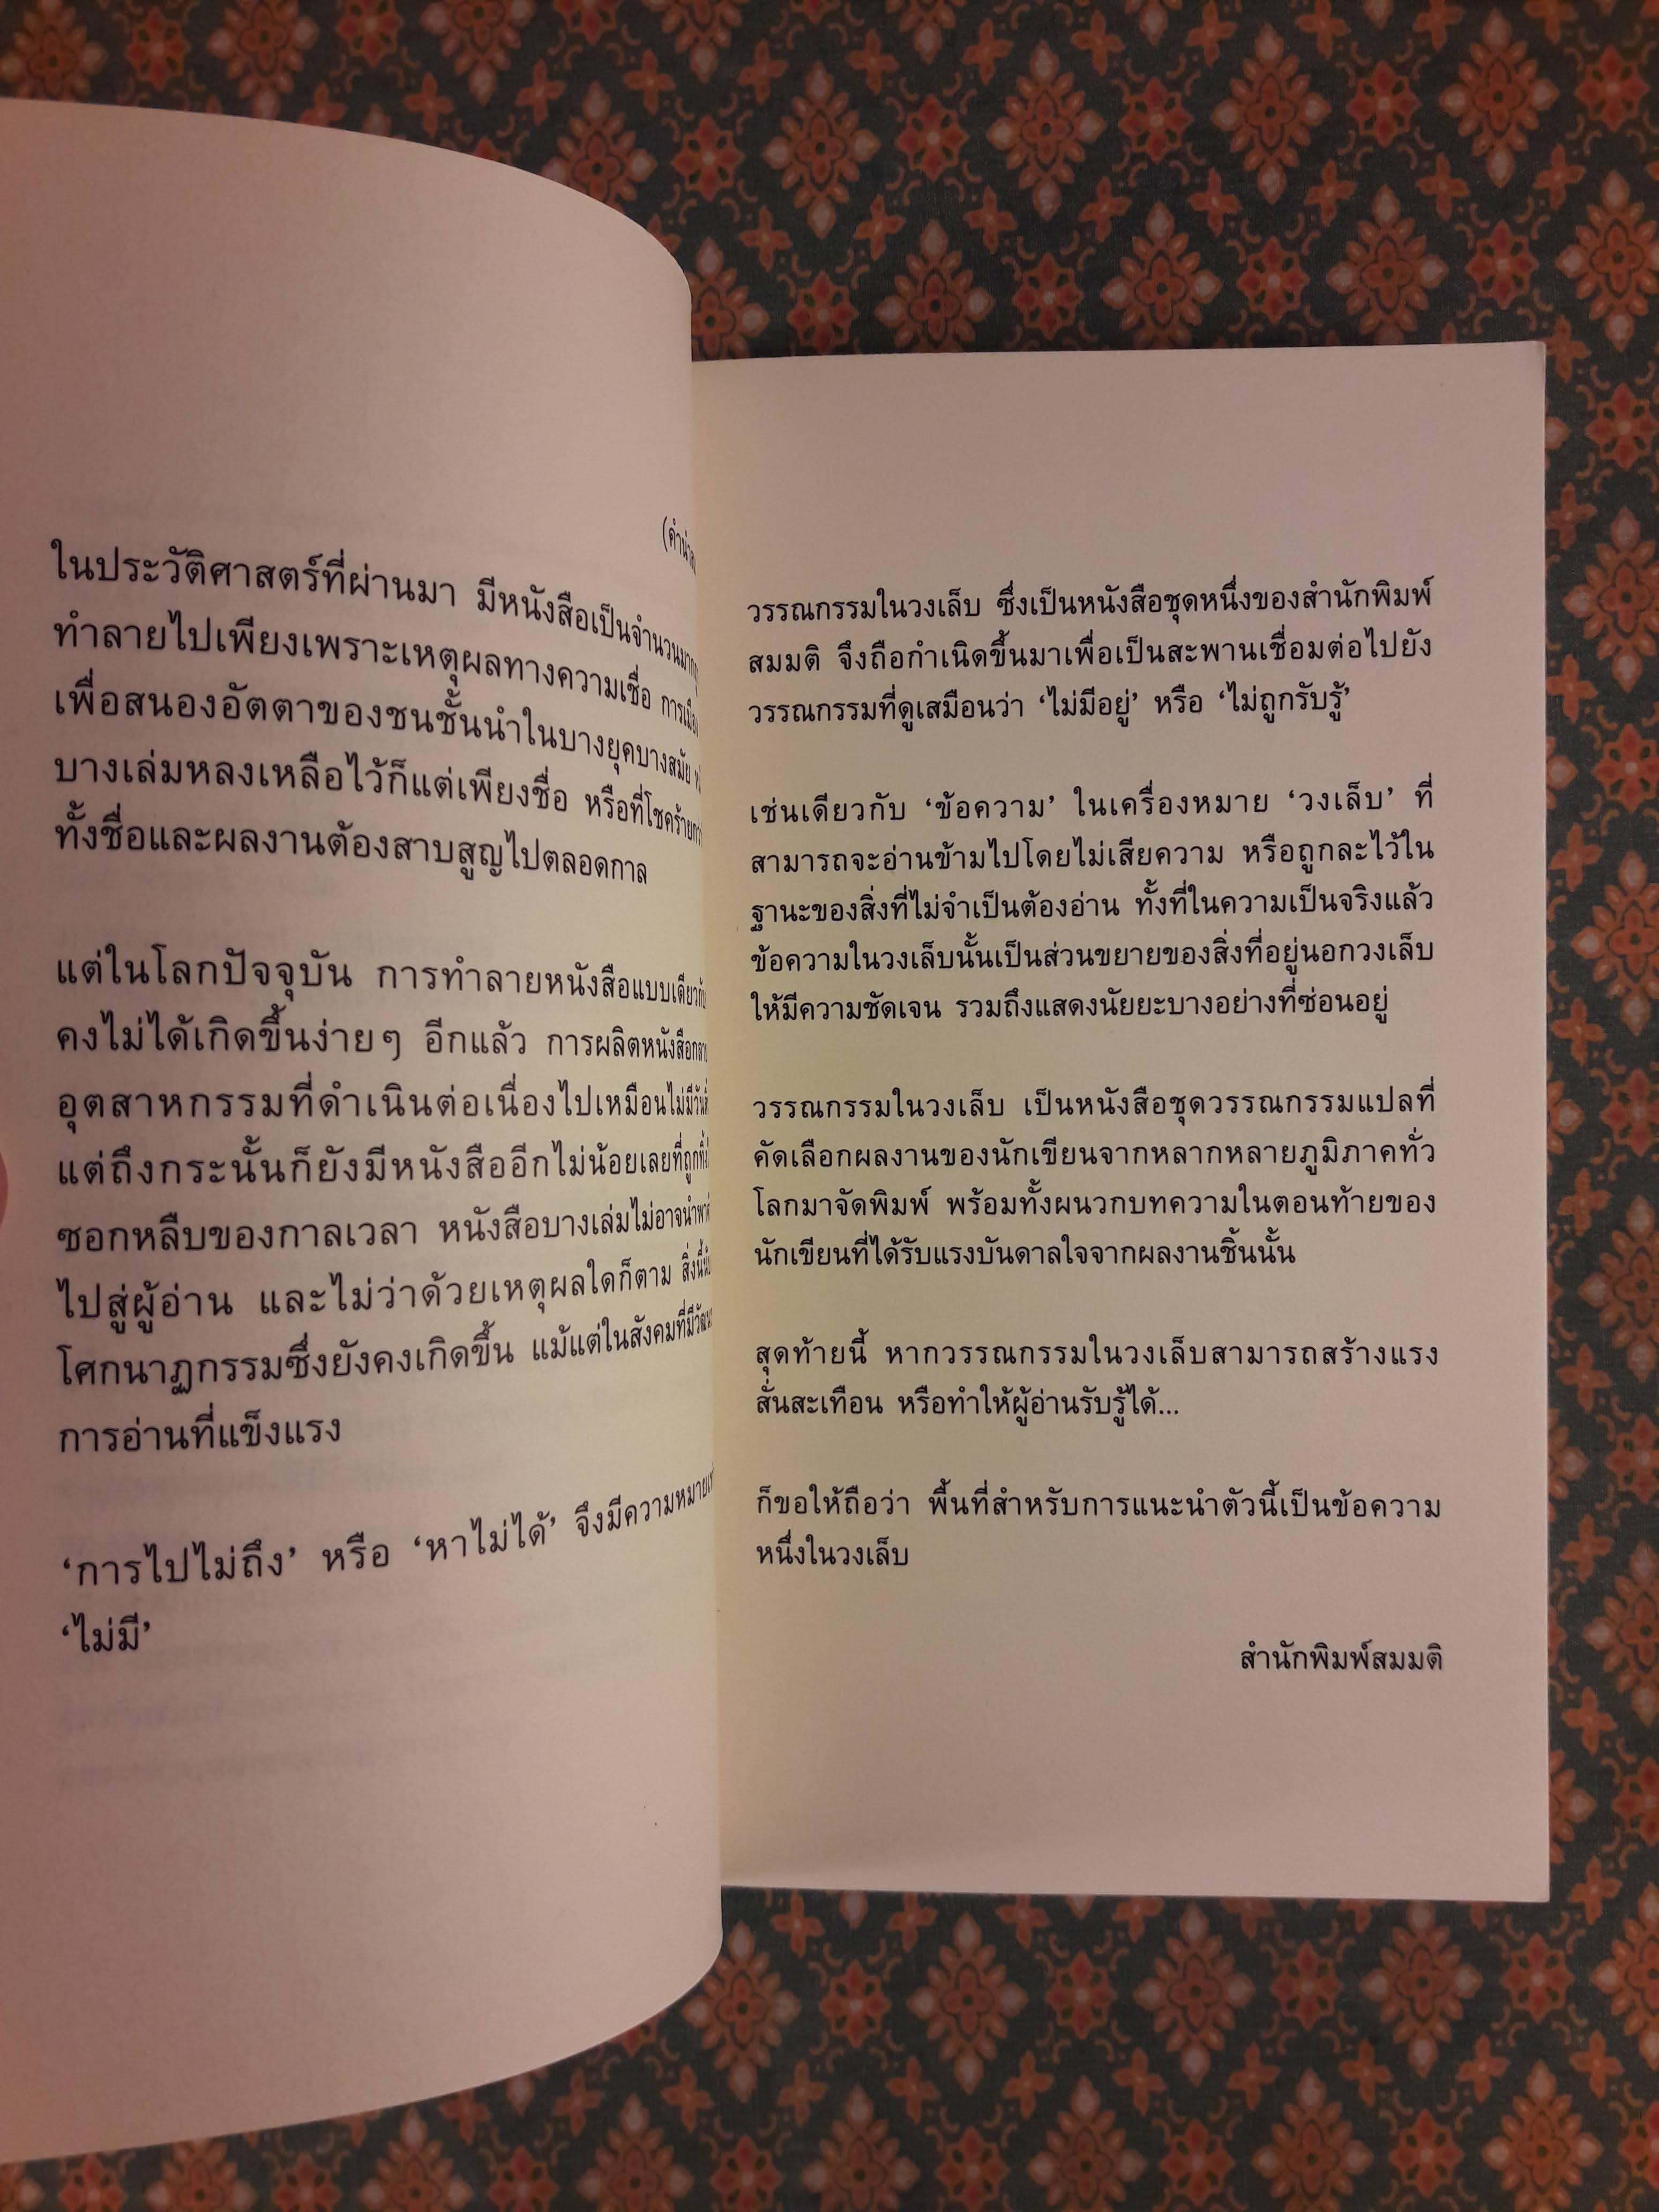 ในประวัติศาสตร์ที่ผ่านมา มีหนังสือเป็นจำนวนมาก
ทำลายไปเพียงเพราะเหตุผลทางความเชื่อ การเมือง
เพื่อสนองอัตตาของชนชั้นนำในบางยุคบางสมัย
บางเล่มหลงเหลือไว้ก็แต่เพียงชื่อ หรือที่โชคร้ายกว่า
ทั้งชื่อและผลงานต้องสาบสูญไปตลอดกาล
แต่ในโลกปัจจุบัน การทำลายหนังสือแบบเดียวกับ
คงไม่ได้เกิดขึ้นง่ายๆ อีกแล้ว การผลิตหนังสือ
อุตสาหกรรมที่ดำเนินต่อเนื่องไปเหมือนไม่มีวัน
แต่ถึงกระนั้นก็ยังมีหนังสืออีกไม่น้อยเลยที่ถูก
ซอกหลืบของกาลเวลา หนังสือบางเล่มไม่อาจนำพา
ไปสู่ผู้อ่าน และไม่ว่าด้วยเหตุผลใดก็ตาม สิ่งนี้
โศกนาฏกรรมซึ่งยังคงเกิดขึ้น แม้แต่ในสังคมที่มี
การอ่านที่แข็งแรง
‘การไปไม่ถึง’ หรือ ‘หาไม่ได้’ จึงมีความหมาย
‘ไม่มี’
วรรณกรรมในวงเล็บ ซึ่งเป็นหนังสือชุดหนึ่งของสำนักพิมพ์
สมมติ จึงถือกำเนิดขึ้นมาเพื่อเป็นสะพานเชื่อมต่อไปยัง
วรรณกรรมที่ดูเสมือนว่า ‘ไม่มีอยู่’ หรือ ‘ไม่ถูกรับรู้’
เช่นเดียวกับ ‘ข้อความ’ ในเครื่องหมาย ‘วงเล็บ’ ที่
สามารถจะอ่านข้ามไปโดยไม่เสียความ หรือถูกละไว้ใน
ฐานะของสิ่งที่ไม่จำเป็นต้องอ่าน ทั้งที่ในความเป็นจริงแล้ว
ข้อความในวงเล็บนั้นเป็นส่วนขยายของสิ่งที่อยู่นอกวงเล็บ
ให้มีความชัดเจน รวมถึงแสดงนัยยะบางอย่างที่ซ่อนอยู่
วรรณกรรมในวงเล็บ เป็นหนังสือชุดวรรณกรรมแปลที่
คัดเลือกผลงานของนักเขียนจากหลากหลายภูมิภาคทั่ว
โลกมาจัดพิมพ์ พร้อมทั้งผนวกบทความในตอนท้ายของ
นักเขียนที่ได้รับแรงบันดาลใจจากผลงานชิ้นนั้น
สุดท้ายนี้ หากวรรณกรรมในวงเล็บสามารถสร้างแรง
สั่นสะเทือน หรือทำให้ผู้อ่านรับรู้ได้...
ก็ขอให้ถือว่า พื้นที่สำหรับการแนะนำตัวนี้เป็นข้อความ
หนึ่งในวงเล็บ
สำนักพิมพ์สมมติ